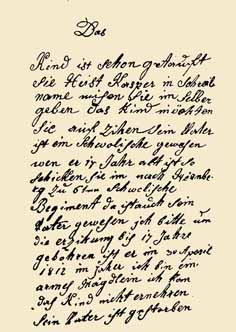 Das
Kind ist schon getauft
Sie Heist Kasper in Schreib
name misen Sie im Selber
geben das Kind möchten
Sie auf Zihen Sein Vater
ist ein Schwolische gewesen
wen er 17 Jahr alt ist so
schicken Sie im nach Nirenber
g Zu 6tun Schwolische
Begiment da ist auch sein
Vater gewesen ich bitte um
die erzikung bis 17 Jahre
gebohren ist er im 30 Aperil
1812 im Jaher ich bin ein
armes Mägdlein ich kan
das Kind nicht ernehren
Sein Vater ist gestorben